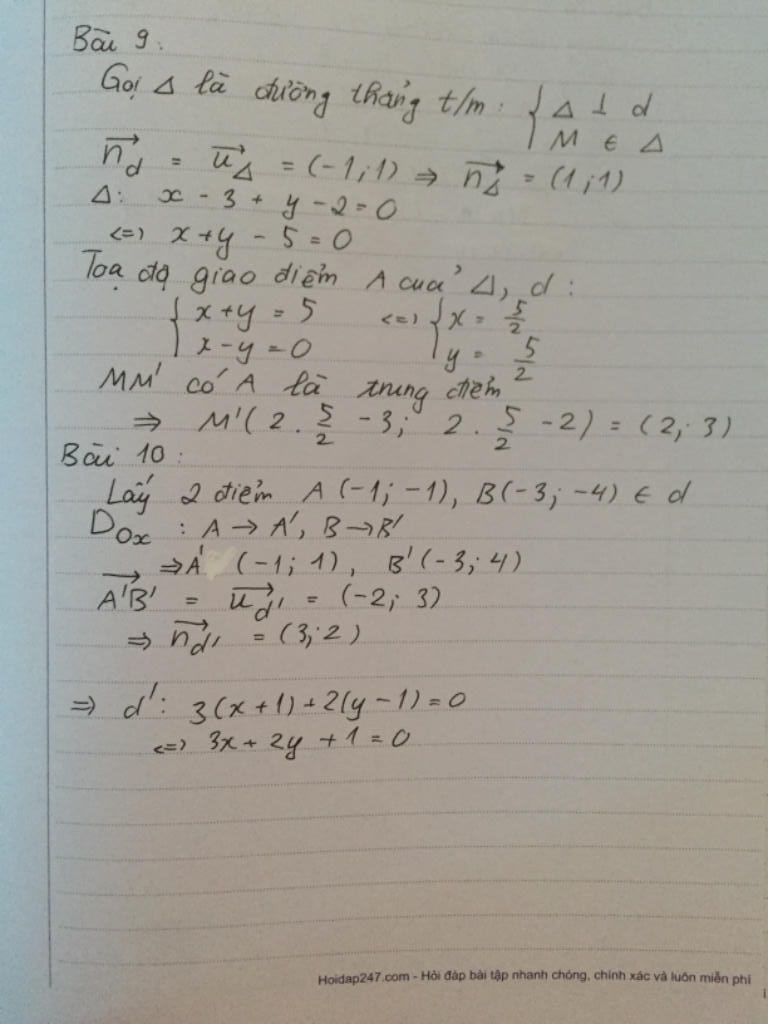 Bài 9:
Gọi Δ là đường thẳng t/m: { Δ ⊥ d
M ∈ Δ
n⃗_d = u⃗_Δ = (-1;1) ⇒ n⃗_Δ = (1;1)
Δ: x - 3 + y - 2 = 0
<=> x + y - 5 = 0
Toạ độ giao điểm A của Δ, d:
{ x + y = 5 <=> { x = 5/2
x - y = 0 y = 5/2
MM' có A là trung điểm
⇒ M'(2. 5/2 - 3; 2. 5/2 - 2) = (2; 3)
Bài 10:
Lấy 2 điểm A(-1; -1), B(-3; -4) ∈ d
Đ_Ox : A → A', B → B'
⇒ A' (-1; 1), B'(-3; 4)
A'B'⃗ = u⃗_d' = (-2; 3)
⇒ n⃗_d' = (3; 2)
⇒ d': 3(x + 1) + 2(y - 1) = 0
<=> 3x + 2y + 1 = 0
Hoidap247.com - Hỏi đáp bài tập nhanh chóng, chính xác và luôn miễn phí